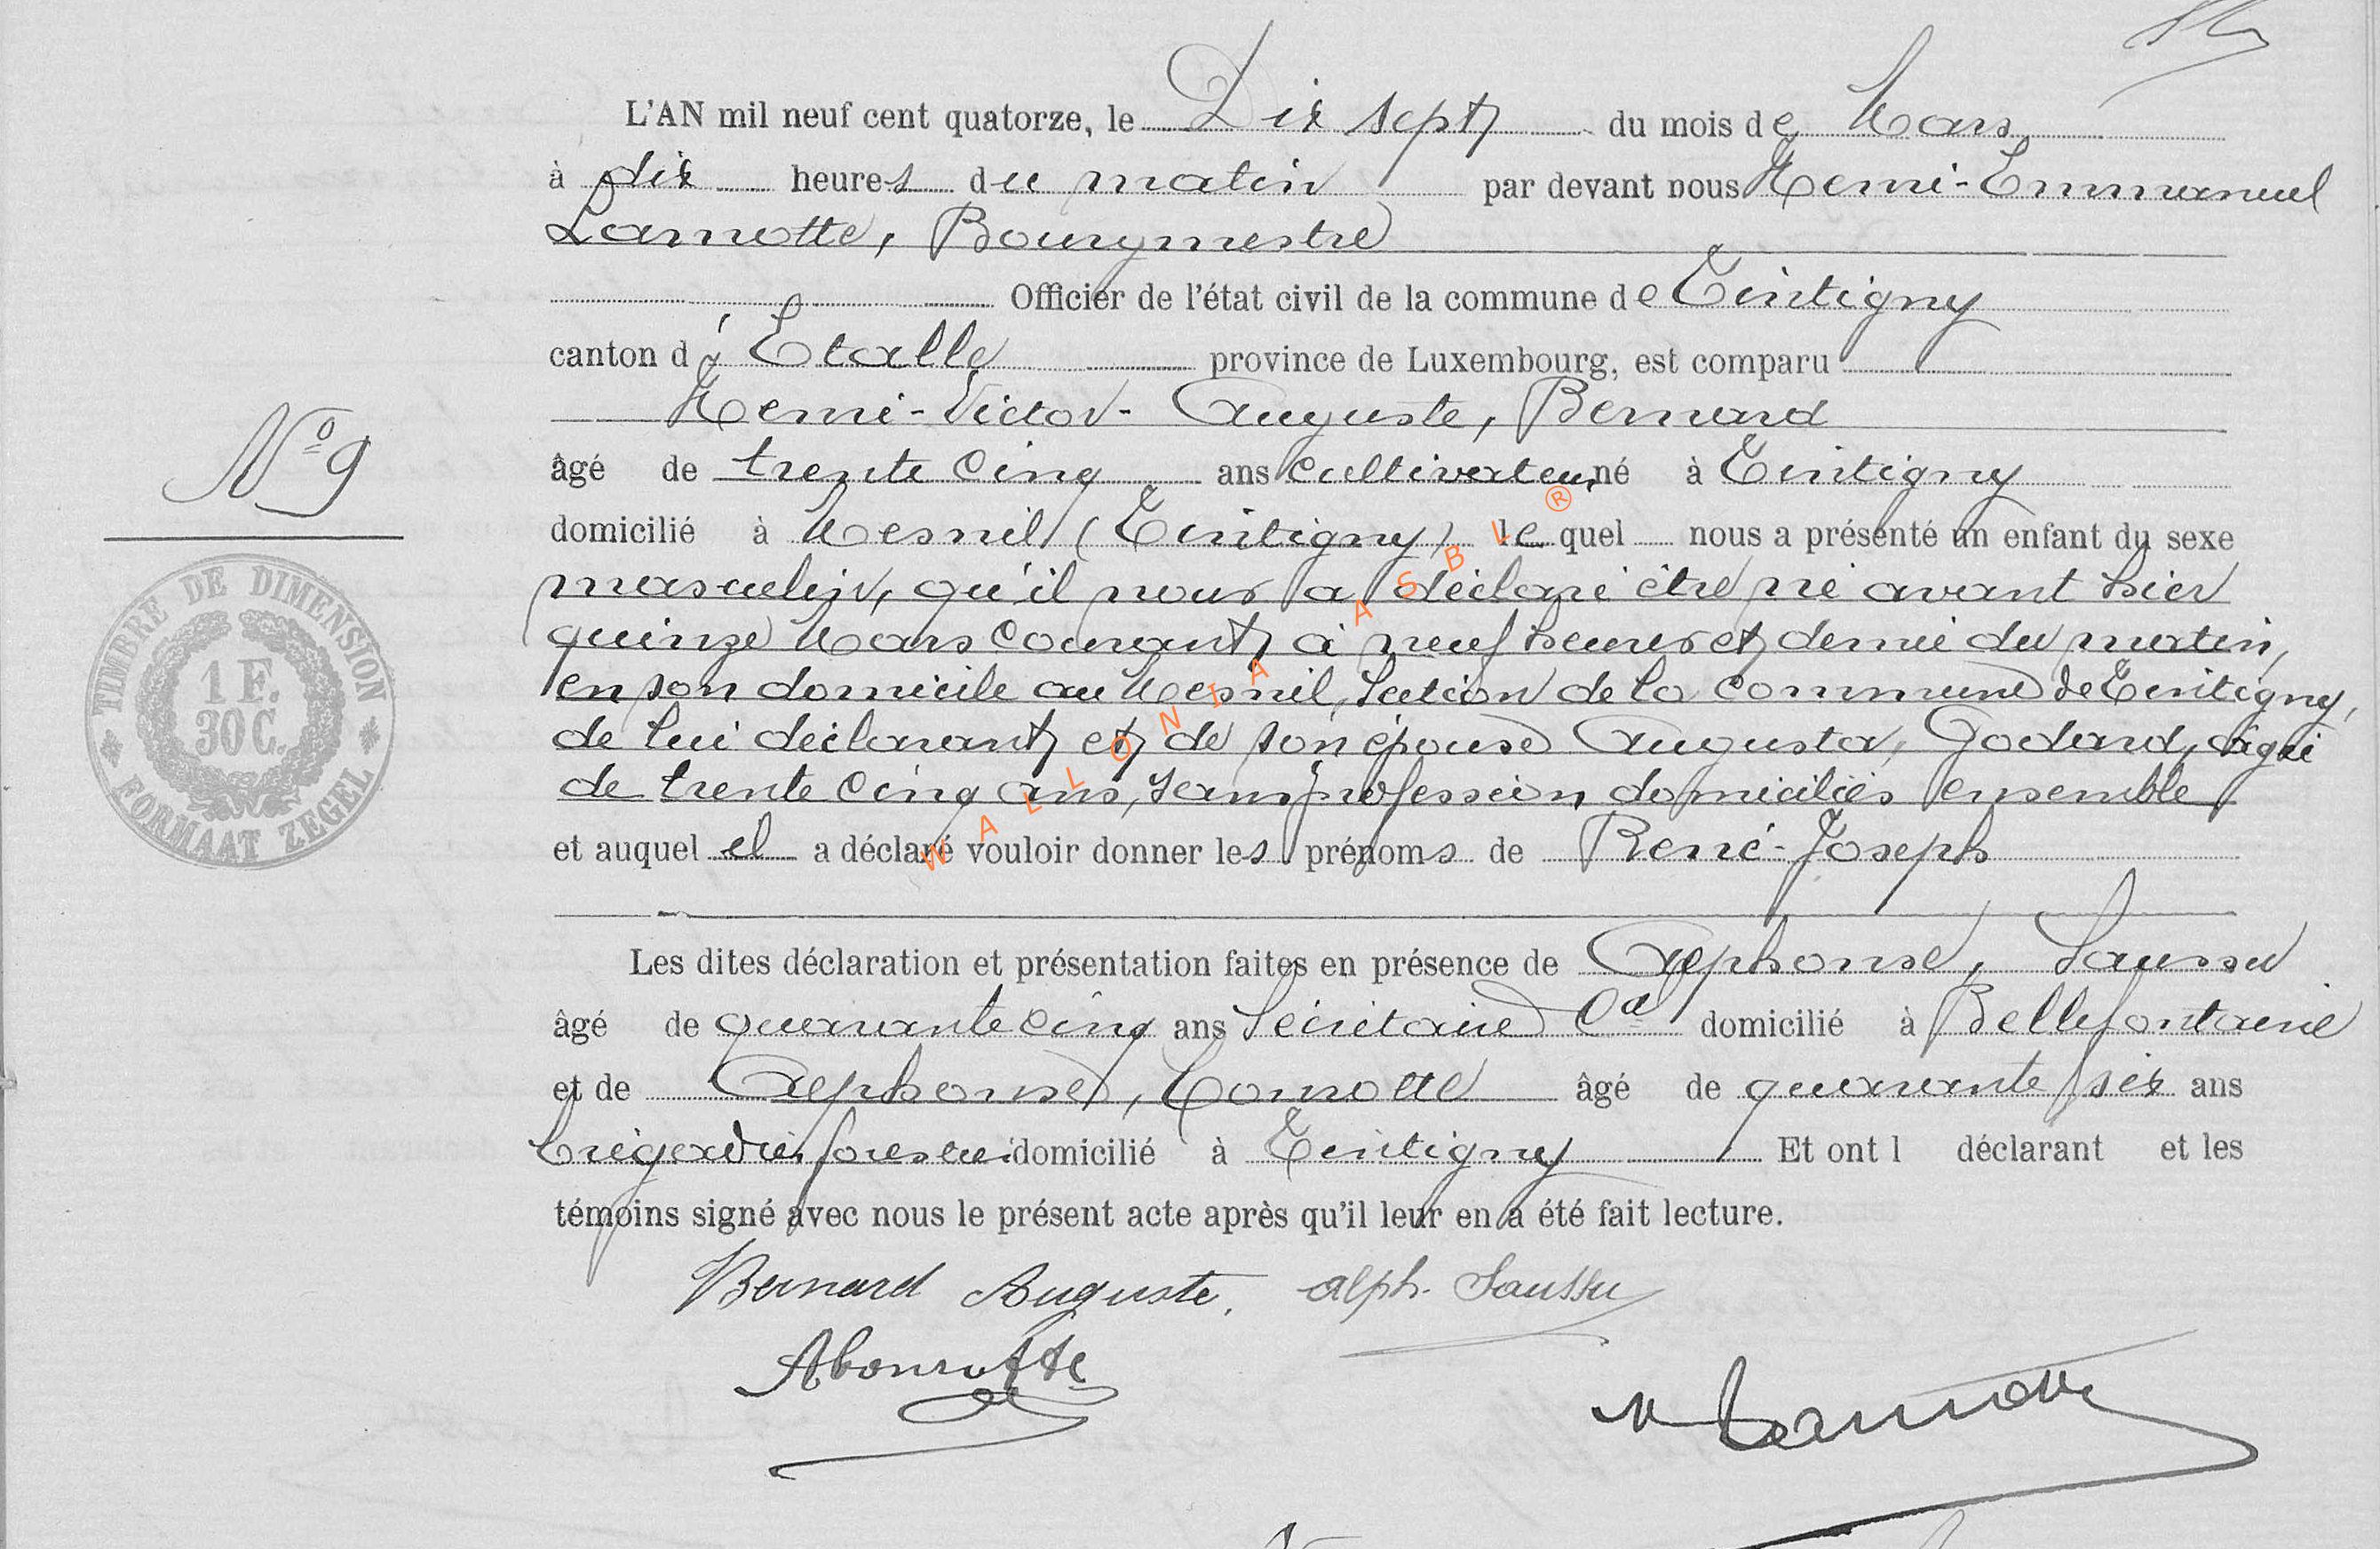 L'AN mil neuf cent quatorze, le Dix sept du mois de Mars
à dix heures du matin par devant nous Henri-Emmanuel
Lamotte, Bourgmestre
Officier de l'état civil de la commune de Tintigny
canton d'Étalle province de Luxembourg, est comparu
Henri-Victor-Auguste, Bernard
N° 9
âgé de trente cinq ans cultivateur né à Tintigny
domicilié à Mesnil (Tintigny) lequel nous a présenté un enfant du sexe
masculin, qu'il nous a déclaré être né avant hier
quinze Mars courant, à neuf heures et demie du matin,
en son domicile au Mesnil, section de la commune de Tintigny,
de lui déclarant et de son épouse Augusta, Godard, âgée
de trente cinq ans, sans profession, domiciliés ensemble
et auquel il a déclaré vouloir donner les prénoms de René-Joseph
TIMBRE DE DIMENSION
1 F.
30 C.
FORMAAT ZEGEL
WALLONIA ASBL ®
Les dites déclaration et présentation faites en présence de Alphonse, Saussu
âgé de quarante cinq ans Secrétaire Cal domicilié à Bellefontaine
et de Alphonse, âgé de quarante six ans
brigadier forestier domicilié à Tintigny Et ont l déclarant et les
témoins signé avec nous le présent acte après qu'il leur en a été fait lecture.
Bernard Auguste. Alph. Saussu
Lamotte